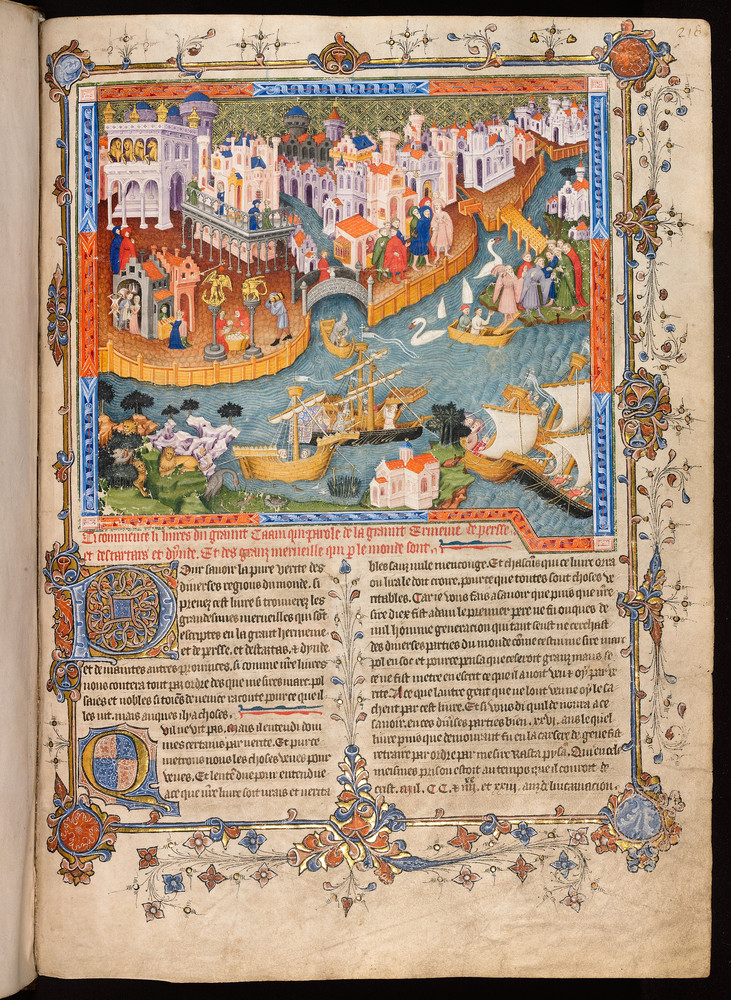 218
Ci commence li livres du graunt Caam qui parole de la graunt Ermenie de persse.
et des tartars et dynde. Et des granz merueille qui p le monde sont.
Pour sauoir la pure verite des
diuerses regions du monde. si
prenez cest liure si trouuerez les
grandesmes merueilles qui sont
escriptes en la grant hermenie
et de persse. et des tatars. & dynde
et de maintes autres prouinces, si comme nre liures
nous contera tout par ordre des que me sires marc pol
saies et nobles citoiens de uenice raconte pour ce que il
les uit. mais auques il y a choses.
Quil ne vit pas. Mais il entendi dom
mes certains par uerite. Et pur ce
metrons nous les choses veues pour
veues. Et lentendue pour entendue
a ce que nre liure soit urais et uerita
bles sanz nule mencouge. Et chascuns qui ce liure orra
ou lira le doit croire, pour ce que toutes sont choses ve
ritables. Car ie vous fais a sauoir que puis que nre
sire diex fist adam le premier pere ne fu onques de
nul homme generacion qui tant seust ne cerchast
des diuerses parties du monde come cestui me sire marc
pol en soc et pour ce pensa que ce seroit granz maus se
ce ne fist metre en escrit ce que il auoit veu & oy par ve
rite. A ce que lautre gent que ne lont veu ne oy le sa
chent par cest liure. Et si vous di quil demoura a ce
sauoir. en ces diuses parties bien .xxvi. ans le quel
liure puis que demourant fu en la carsere de gene fist
retraire par ordre par me sire Rasta pysa. Qui en cele
meismes prison estoit au temps que il couroit de
crist. Mil. CC. & et xviii. anz de lincarnacion.